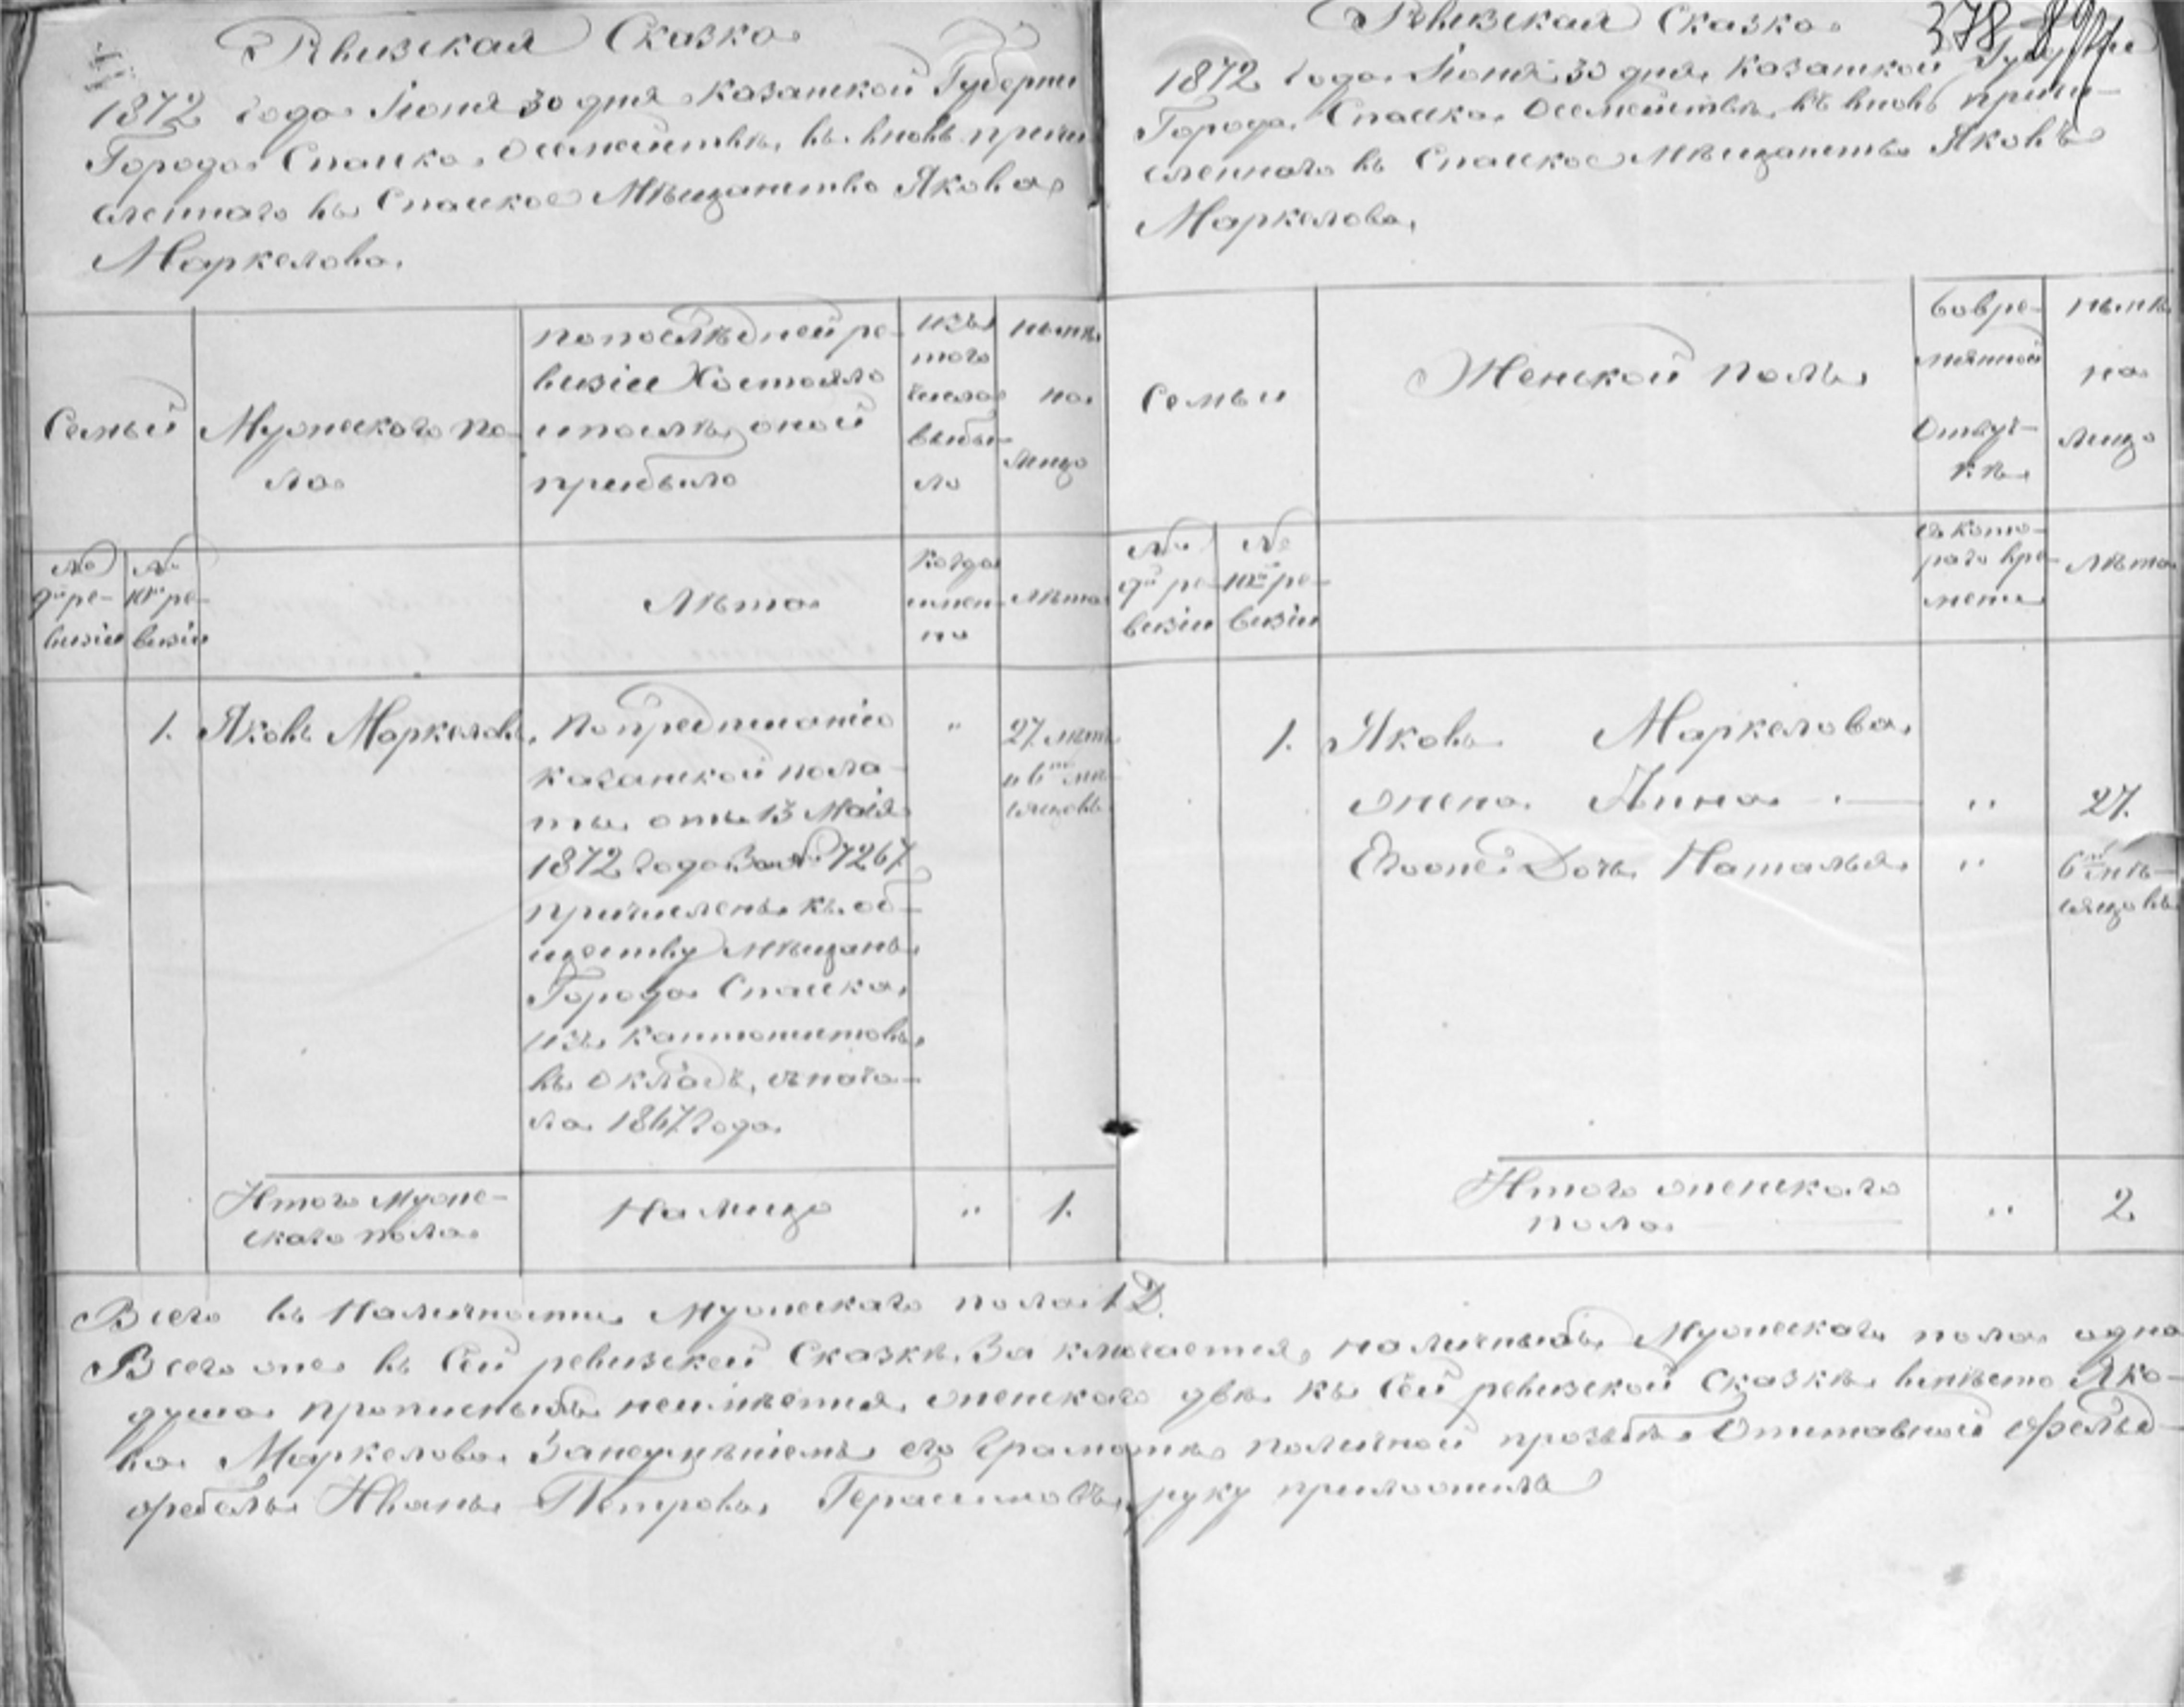 Ревизская Сказка
1872 года Июня 30 дня Казанской Губернии
Города Спасска, о семействе, въ вновь причи
сленнаго въ Спаское Мѣщанство Якова
Маркелова.
Семьи
Мужескаго по-
ла
попослѣдней ре-
визіи Состояло
ипослѣ оной
прибыло
изъ
того
числа
выбы-
ло
нынѣ
на
лицо
№
9й ре-
визіи
№
10й ре-
визіи
Лѣта
Когда
имен-
но
Лѣта
1.
Яковъ Маркеловъ.
Попредписанію
Казанской пала-
ты отъ 13 Маія
1872 года за № 7267
причисленъ къ об-
ществу мѣщанъ
Города Спасска,
изъ кантонистовъ,
въ окладъ, съ нача-
ла 1867 года.
"
27 лѣтъ
и 6ти мѣ-
сяцовъ
Итого муже-
скаго пола
Налицо
"
1.
Ревизская Сказка
378
1872 года Июня 30 дня Казанской Губерніи
Города Спасска, о семействе, въ вновь причи-
сленнаго въ Спаское Мѣщанство Яковъ
Маркелова.
Семьи
Женской полъ
Вовре-
мянной
Отлуч-
кѣ
нынѣ
на
лицо
№
9й ре-
визіи
№
10й ре-
визіи
съ кото-
раго вре-
мени
Лѣта
1.
Яковъ Маркелова
жена Анна - —
"
27.
Егоже Дочь Наталья
"
6ти мѣ-
сяцовъ
Итого женскаго
пола
"
2
Всего въ Наличности Мужескаго пола 1 Д.
Всего же въ Сей ревизской Сказкѣ Заключается, наличныхъ Мужескаго пола одна
душа прописныхъ неимѣется, женскаго двѣ къ Сей ревизской Сказкѣ вмѣсто Яко-
ва Маркелова Занеумѣніемъ его Грамотѣ поличной прозьбѣ Отставной Фельд-
фебель Иванъ Петровъ Герасимовъ, руку приложилъ